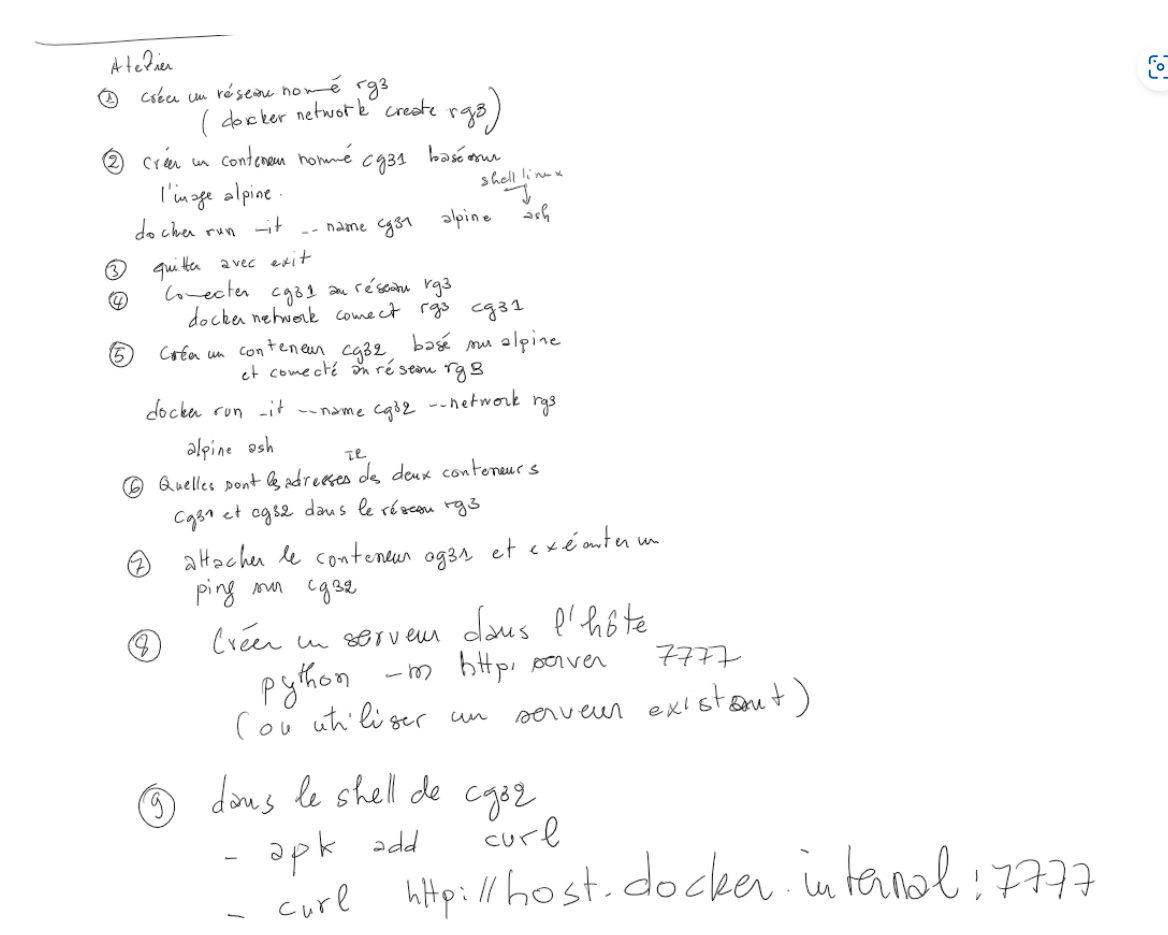 Atelier
① créer un réseau nommé rg3
( docker network create rg3)
② créer un conteneur nommé cg31 basé sur
l'image alpine.
shell linux
docker run -it --name cg31 alpine ash
③ quitter avec exit
④ Connecter cg31 au réseau rg3
docker network connect rg3 cg31
⑤ Créer un conteneur cg32 basé sur alpine
et connecté au réseau rg3
docker run -it --name cg32 --network rg3
alpine ash
IP
⑥ Quelles sont les adresses des deux conteneurs
cg31 et cg32 dans le réseau rg3
⑦ attacher le conteneur cg31 et exécuter un
ping sur cg32
⑧ Créer un serveur dans l'hôte
python -m http.server 7777
(ou utiliser un serveur existant)
⑨ dans le shell de cg32
- apk add curl
- curl http://host.docker.internal:7777